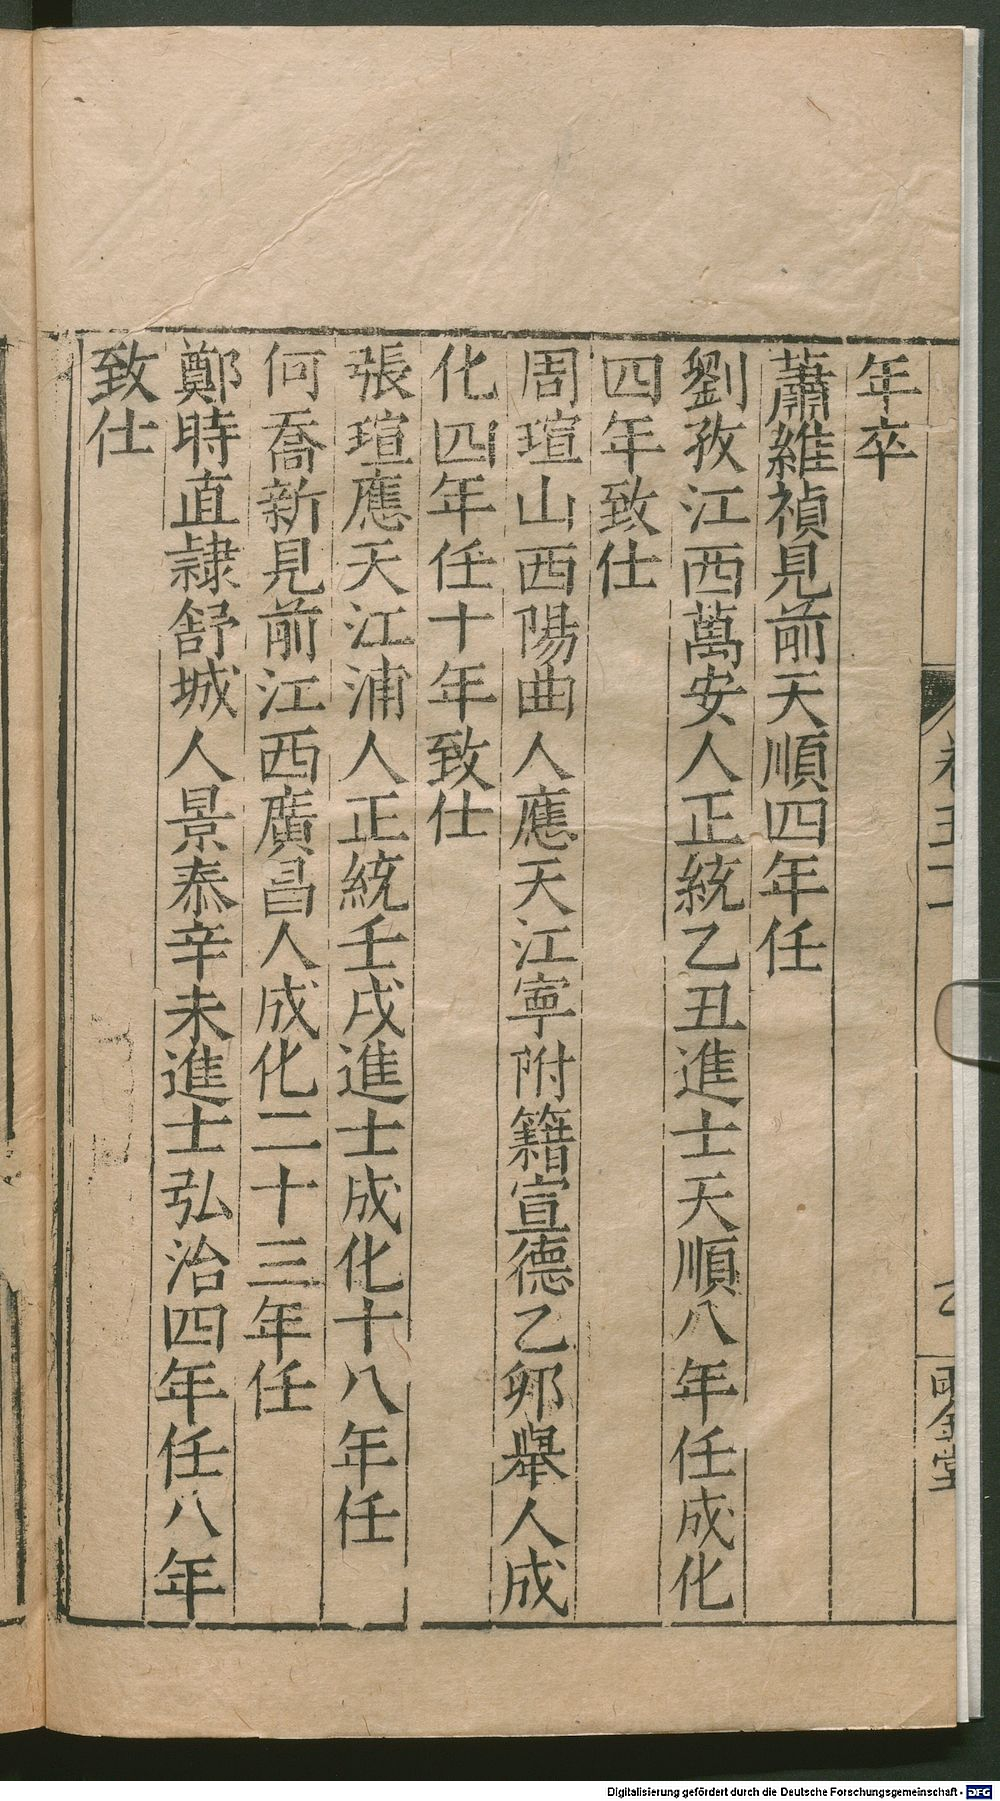 年卒
蕭維禎見前天順四年任
劉孜江西萬安人正統乙丑進士天順八年任成化
四年致仕
周瑄山西陽曲人應天江寧附籍宣德乙卯舉人成
化四年任十年致仕
張瑄應天江浦人正統壬戌進士成化十八年任
何喬新見前江西廣昌人成化二十三年任
鄭時直隸舒城人景泰辛未進士弘治四年任八年
致仕
Digitalisierung gefördert durch die Deutsche Forschungsgemeinschaft - DFG